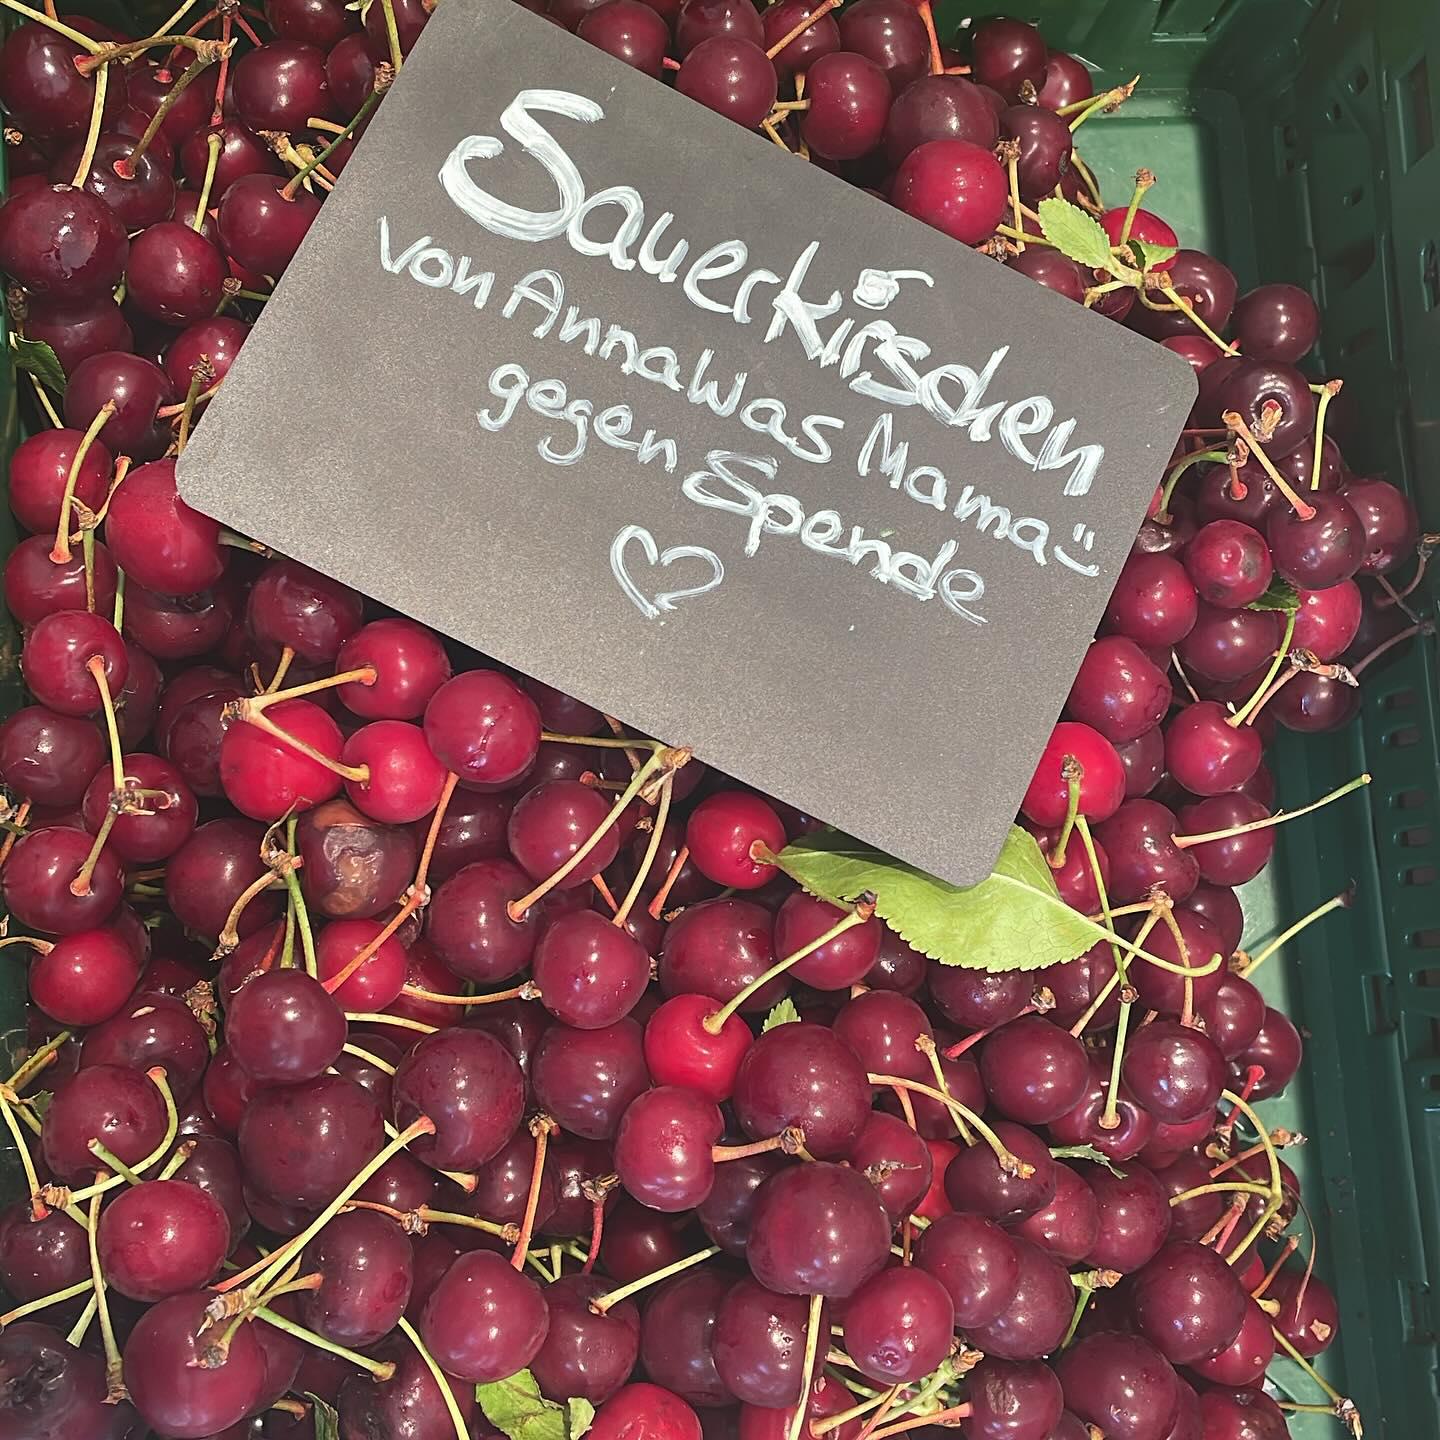 Sauerkirschen
von AnnaWas Mama :)
gegen Spende